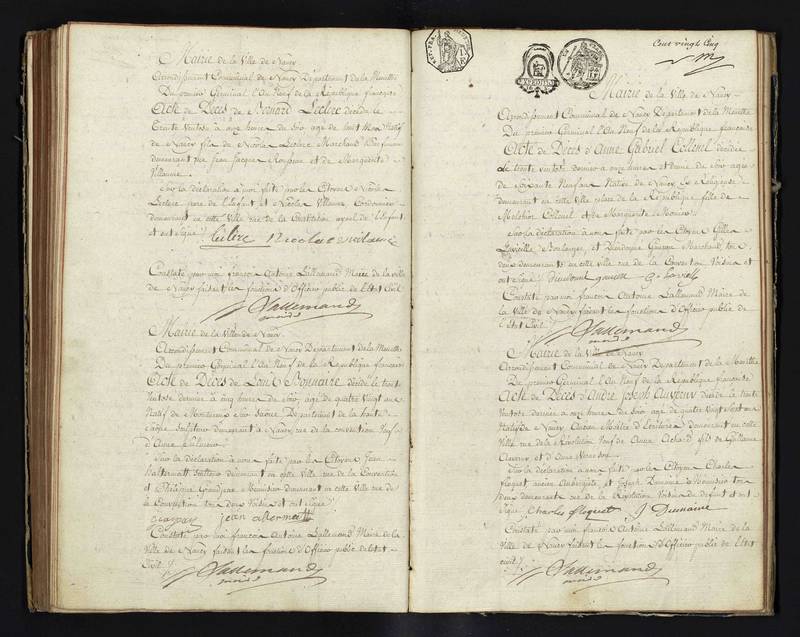 Mairie de la Ville de Nancy
Arrondissement Communal de Nancy Département de la Meurthe
Du premier Germinal l'An Neuf de la République françoise
Acte de Décès de Bernard Leclerc décédé le
trente Ventose à onze heures du Soir, âgé de huit Mois Natif
de Nancy fils de Nicolas Leclerc Marchand
demeurant rue Jean Jacques Rousseau et de Marguerite
Villaume
Sur la déclaration à moi faite par le Citoyen Nicolas
Leclerc pere de l'Enfant et Nicolas Villaume Cordonnier
demeurant en cette Ville rue de la Constitution ayeul de l'Enfant
et ont signé
leclerc Nicolas villaume
Constaté par moi françois Antoine Lallemand Maire de la ville
de Nancy faisant les fonctions d'Officier public de l'Etat Civil
Lallemand
maire
Mairie de la Ville de Nancy
Arrondissement Communal de Nancy Département de la Meurthe
Du premier Germinal l'An Neuf de la République françoise
Acte de Décès de Louis Bonnaire décédé le trente
Ventose dernier à cinq heures du Soir, âgé de quatre Vingt ans
Natif de Sur Saône Département de la haute
Saône Sculpteur demeurant à Nancy rue de la convention Veuf
d'Anne
Sur la déclaration à moi faite par les Citoyens Jean
demeurant en cette Ville rue de la Convention
et Grandjean Menuisier demeurant en cette Ville rue de
la Convention tous deux Voisins et ont signé
jean
Constaté par moi françois Antoine Lallemand Maire de la
Ville de Nancy faisant les fonctions d'Officier public de l'Etat
Civil
Lallemand
maire
Cent vingt Cinq
Mairie de la Ville de Nancy
Arrondissement Communal de Nancy Département de la Meurthe
Du premier Germinal l'An Neuf de la République françoise
Acte de Décès d'Anne Gabriel Collenel décédée
le trente ventose dernier à onze heures et demie du Soir âgée
de Soixante Neuf ans Native de Nancy Ex Religieuse
demeurant en cette Ville place de la République fille de
Melchior Collenel et de Marguerite
Sur la déclaration à moi faite par les Citoyens Gilles
Boulanger, et Dieudonné Marchand tous
deux demeurants en cette ville rue de la Convention Voisins et
ont signé
Constaté par moi françois Antoine Lallemand Maire de
la Ville de Nancy faisant les fonctions d'Officier public de
l'état Civil
Lallemand
maire
Mairie de la Ville de Nancy
Arrondissement Communal de Nancy Département de la Meurthe
Du premier Germinal l'An Neuf de la République françoise
Acte de Décès d'André Joseph Auverny décédé le trente
Ventose dernier à onze heures du Soir âgé de quatre Vingt
Natif de Nancy Ancien Maître d'Ecriture demeurant en cette
Ville rue de la Révolution Veuf de Anne Achard fils de Guillaume
Auverny et d'Anne
Sur la déclaration à moi faite par les Citoyens Charles
floquet ancien Aubergiste et Joseph Dumaine Menuisier tous
deux demeurants rue de la Révolution Voisins du defunt et ont
signé Charles floquet J Dumaine
Constaté par moi françois Antoine Lallemand Maire de la
Ville de Nancy faisant les fonctions d'Officier public de l'Etat
civil
Lallemand
maire